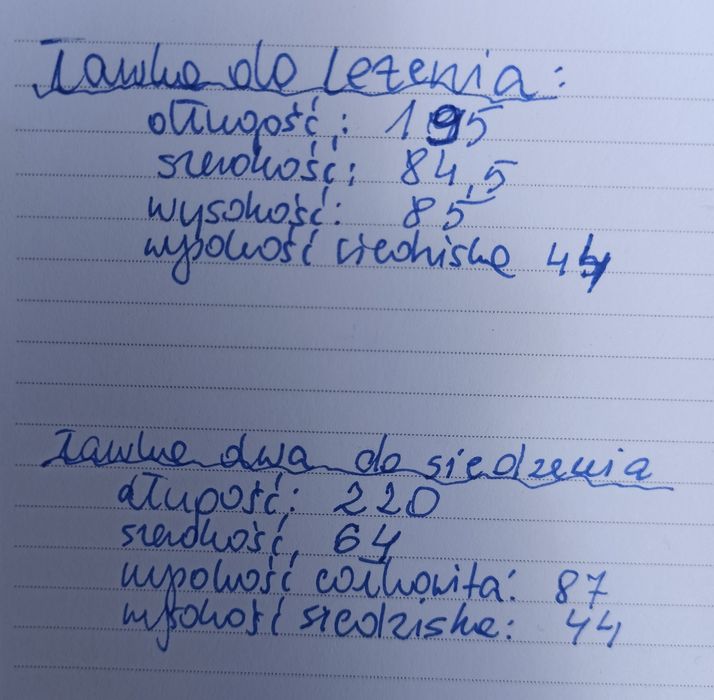 Ławka do leżenia:
długość: 195
szerokość: 84,5
wysokość: 85
wysokość siedziska 44
Ławka dwa do siedzenia
długość: 220
szerokość, 64
wysokość całkowita: 87
wysokość siedziska: 44